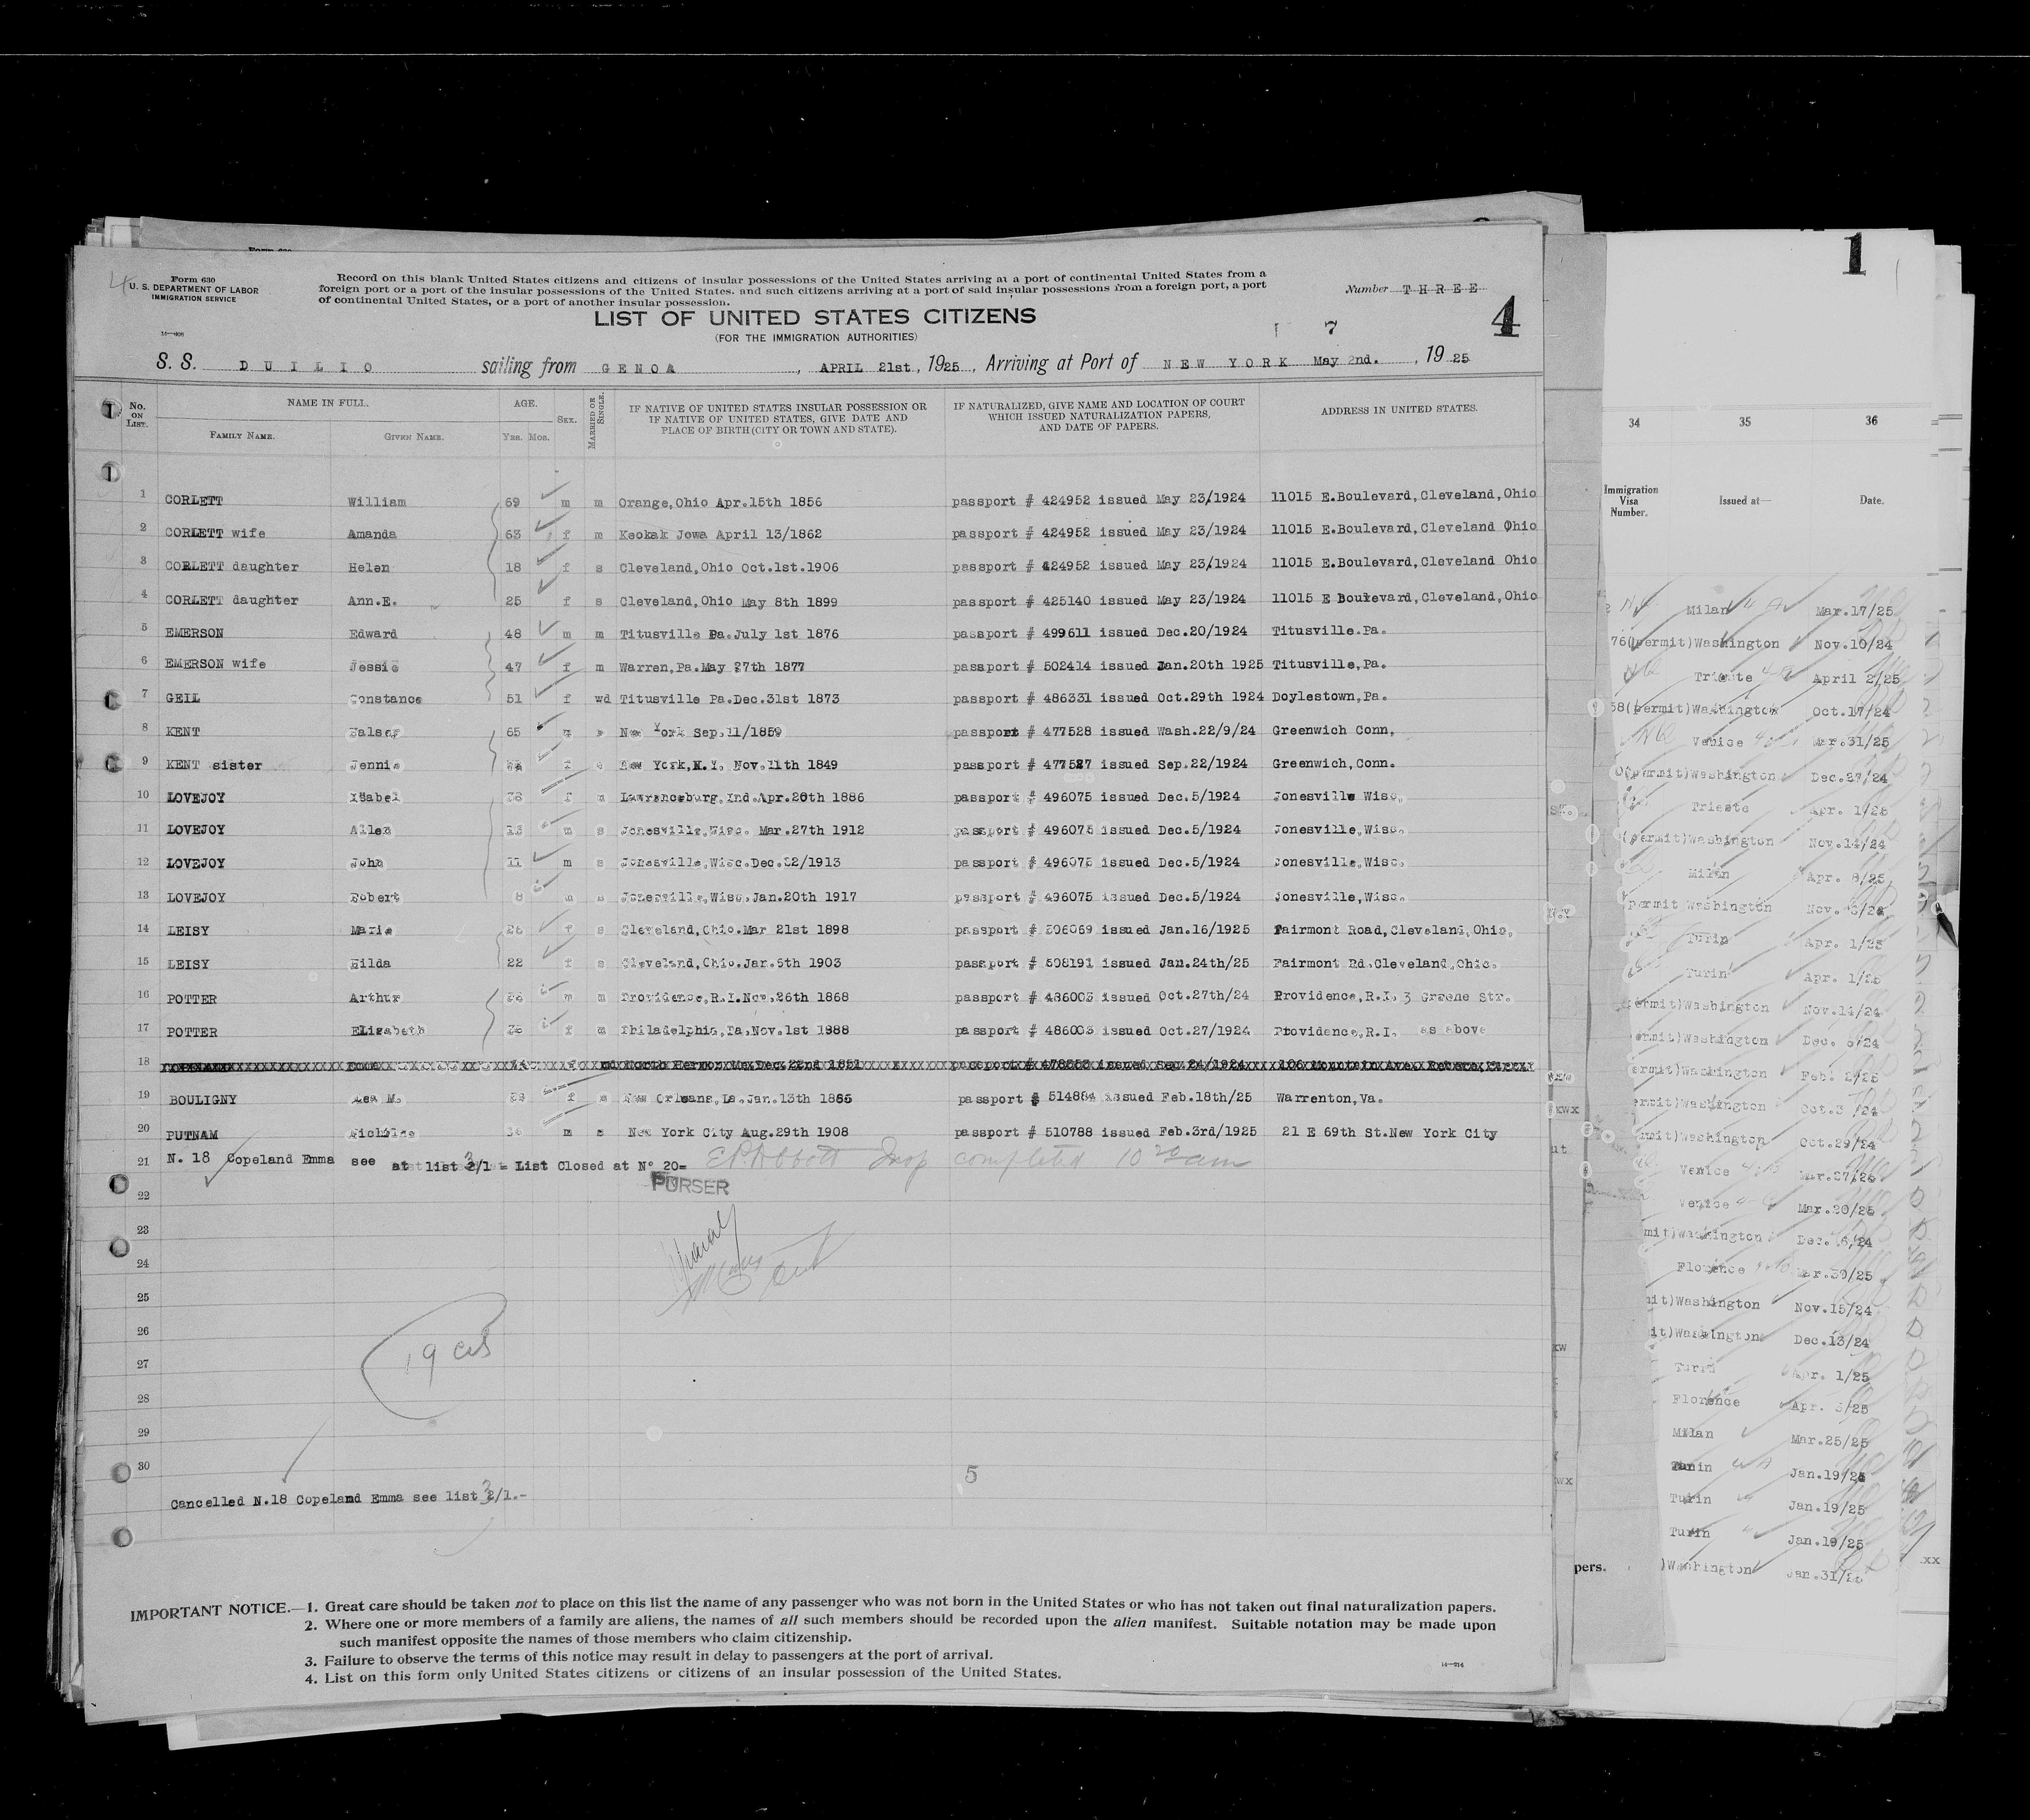 Form 630
U. S. DEPARTMENT OF LABOR
IMMIGRATION SERVICE
Record on this blank United States citizens and citizens of insular possessions of the United States arriving at a port of continental United States from a
foreign port or a port of the insular possessions of the United States. and such citizens arriving at a port of said insular possessions from a foreign port, a port
of continental United States, or a port of another insular possession.
Number THREE
4
LIST OF UNITED STATES CITIZENS
(FOR THE IMMIGRATION AUTHORITIES)
7
S. S. DUILIO sailing from GENOA, APRIL 21st, 1925, Arriving at Port of NEW YORK May 2nd., 1925
No. ON LIST. NAME IN FULL. AGE. SEX. MARRIED OR SINGLE. IF NATIVE OF UNITED STATES INSULAR POSSESSION OR IF NATIVE OF UNITED STATES, GIVE DATE AND PLACE OF BIRTH (CITY OR TOWN AND STATE). IF NATURALIZED, GIVE NAME AND LOCATION OF COURT WHICH ISSUED NATURALIZATION PAPERS, AND DATE OF PAPERS. ADDRESS IN UNITED STATES.
FAMILY NAME. GIVEN NAME. YRS. MOS.
1 CORLETT William 69 m m Orange,Ohio Apr.15th 1856 passport # 424952 issued May 23/1924 11015 E.Boulevard,Cleveland,Ohio
2 CORLETT wife Amanda 63 f m Keokak Jowa April 13/1862 passport # 424952 issued May 23/1924 11015 E.Boulevard,Cleveland Ohio
3 CORLETT daughter Helen 18 f s Cleveland,Ohio Oct.1st.1906 passport # 424952 issued May 23/1924 11015 E.Boulevard,Cleveland Ohio
4 CORLETT daughter Ann.E. 25 f s Cleveland,Ohio May 8th 1899 passport # 425140 issued May 23/1924 11015 E Boulevard,Cleveland,Ohio
5 EMERSON Edward 48 m m Titusville Pa.July 1st 1876 passport # 499611 issued Dec.20/1924 Titusville.Pa.
6 EMERSON wife Jessie 47 f m Warren,Pa.May 27th 1877 passport # 502414 issued Jan.20th 1925 Titusville,Pa.
7 GEIL Constance 51 f wd Titusville Pa.Dec.31st 1873 passport # 486331 issued Oct.29th 1924 Doylestown,Pa.
8 KENT 65 New York Sep.11/1859 passport # 477528 issued Wash.22/9/24 Greenwich Conn.
9 KENT sister Jennie f New York,N.Y. Nov.11th 1849 passport # 477527 issued Sep.22/1924 Greenwich,Conn.
10 LOVEJOY Isabel 38 f m Lawrenceburg,Ind.Apr.20th 1886 passport # 496075 issued Dec.5/1924 Jonesville Wisc.
11 LOVEJOY Allen 13 m s Jonesville,Wisc. Mar.27th 1912 passport # 496075 issued Dec.5/1924 Jonesville,Wisc.
12 LOVEJOY John 11 m s Jonesville,Wisc.Dec.22/1913 passport # 496075 issued Dec.5/1924 Jonesville,Wisc.
13 LOVEJOY Robert 8 m s Jonesville,Wisc.Jan.20th 1917 passport # 496075 issued Dec.5/1924 Jonesville,Wisc.
14 LEISY Marie 26 f s Cleveland,Ohio.Mar 21st 1898 passport # 506069 issued Jan.16/1925 Fairmont Road,Cleveland,Ohio,
15 LEISY Hilda 22 f s Cleveland,Ohio.Jan.5th 1903 passport # 508191 issued Jan.24th/25 Fairmont Rd.Cleveland,Ohio.
16 POTTER Arthur 56 m m Providence,R.I.Nov.26th 1868 passport # 486003 issued Oct.27th/24 Providence,R.I. 3 Greene Str.
17 POTTER Elisabeth f m Philadelphia,Pa,Nov.1st 1988 passport # 486003 issued Oct.27/1924 Providence,R.I. as above
18 Emma North Hermon Me.Dec.22nd 1851 passport # issued Sep.24/1924 106 Mountain Ave.
19 BOULIGNY M. f s New Orleans,La.Jan.13th passport # 514884 issued Feb.18th/25 Warrenton,Va.
20 PUTNAM Nicholas m s New York City Aug.29th 1908 passport # 510788 issued Feb.3rd/1925 21 E 69th St.New York City
21 N. 18 Copeland Emma see at list 3/1 = List Closed at N° 20= Insp completed 10 20 am
PURSER
22
23
24
25
26
27
28
29
30
19 cits
5
Cancelled N.18 Copeland Emma see list 3/1.-
IMPORTANT NOTICE.—1. Great care should be taken not to place on this list the name of any passenger who was not born in the United States or who has not taken out final naturalization papers.
2. Where one or more members of a family are aliens, the names of all such members should be recorded upon the alien manifest. Suitable notation may be made upon
such manifest opposite the names of those members who claim citizenship.
3. Failure to observe the terms of this notice may result in delay to passengers at the port of arrival.
4. List on this form only United States citizens or citizens of an insular possession of the United States.
14—914
1
34 35 36
Immigration Visa Number. Issued at— Date.
Milan Mar.17/25
76(permit)Washington Nov.10/24
Trieste April 2/25
58(permit)Washington Oct.17/24
Venice Mar.31/25
(permit)Washington Dec.27/24
Trieste Apr. 1/25
(permit)Washington Nov.14/24
Milan Apr. 8/25
permit Washington Nov. 6/24
Turin Apr. 1/25
Turin Apr. 1/25
ermit)Washington Nov.14/24
ermit)Washington Dec. 6/24
ermit)Washington Feb. 2/25
ermit)Washington Oct.3 /24
rmit)Washington Oct.29/24
Venice Mar.27/25
Venice Mar.20/25
mit)Washington Dec. 6/24
Florence Mar.30/25
mit)Washington Nov.15/24
it)Washington Dec.13/24
Turin Apr. 1/25
Florence Apr. 3/25
Milan Mar.25/25
Turin Jan.19/25
Turin Jan.19/25
Turin Jan.19/25
)Washington Jan.31/25
pers.